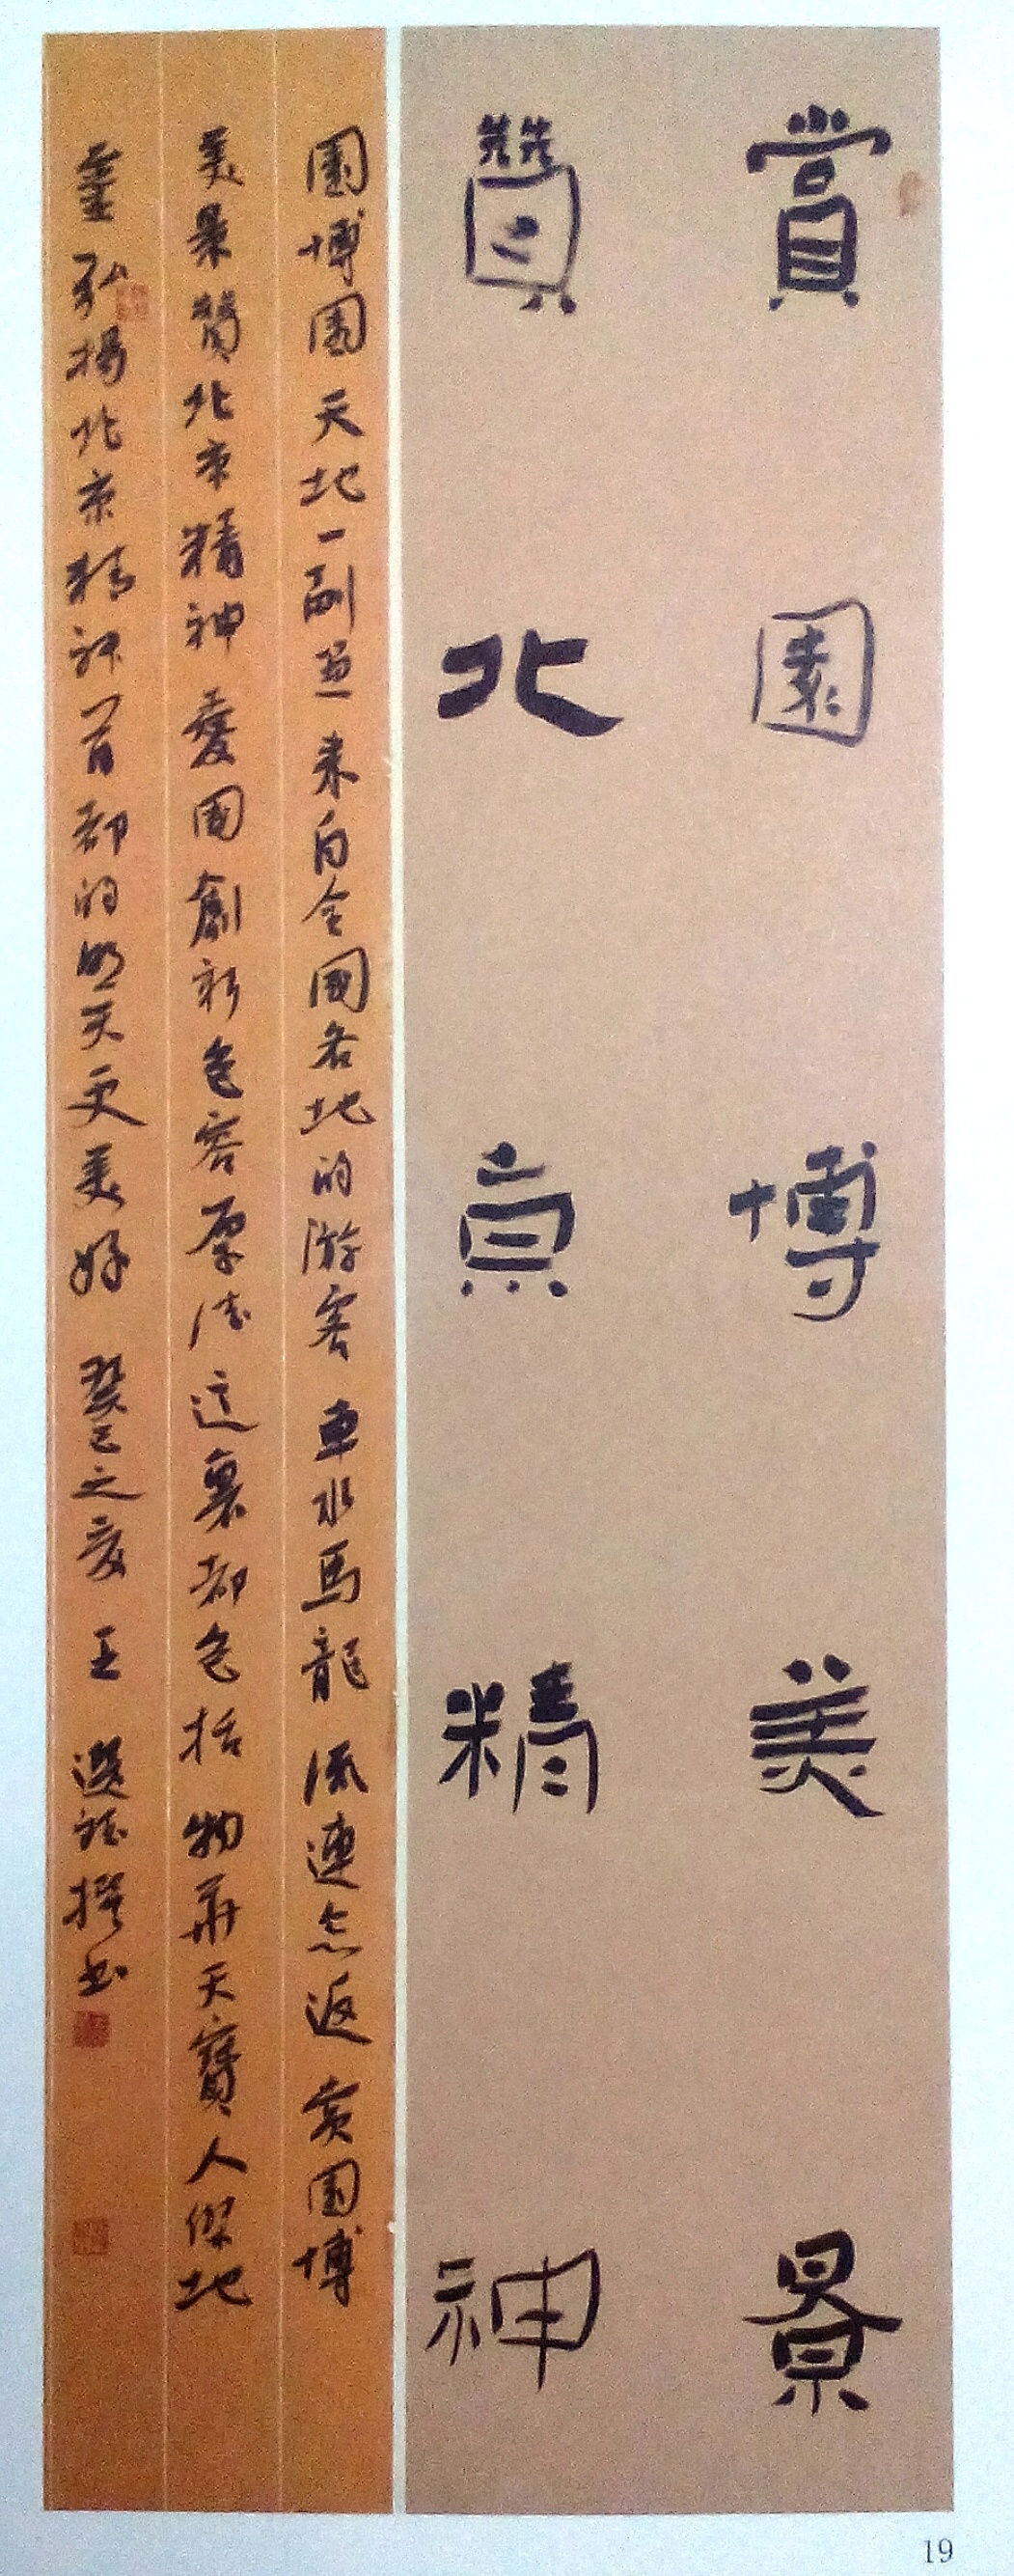 賞園博美景
贊北京精神
園博園天地一副来自全國各地的游客車水馬龍流連忘返賞園博
美景贊北京精神愛國創新包容厚德這裏都包括物華天寶人傑地
弘揚北京精神首都的明天更美好癸巳之夏王選撰书
19